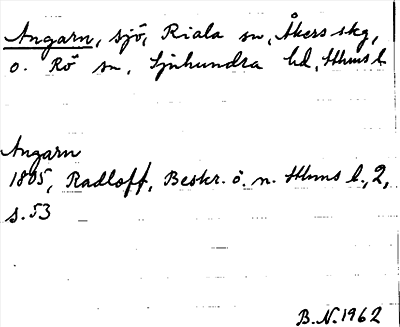 Angarn, sjö, Riala sn, Åkers skg,
o. Rö sn, Sjuhundra hd, Sthms l.
Angarn
1805, Radloff, Beskr. ö. n. Sthms l., 2,
s. 53
B.N. 1962